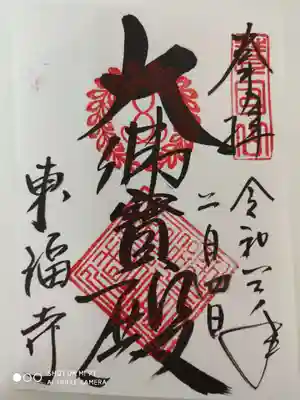 奉拝
令和六年
二月四日
大佛寶殿
東福寺
SHOT ON MI PLAY
AI DUAL CAMERA